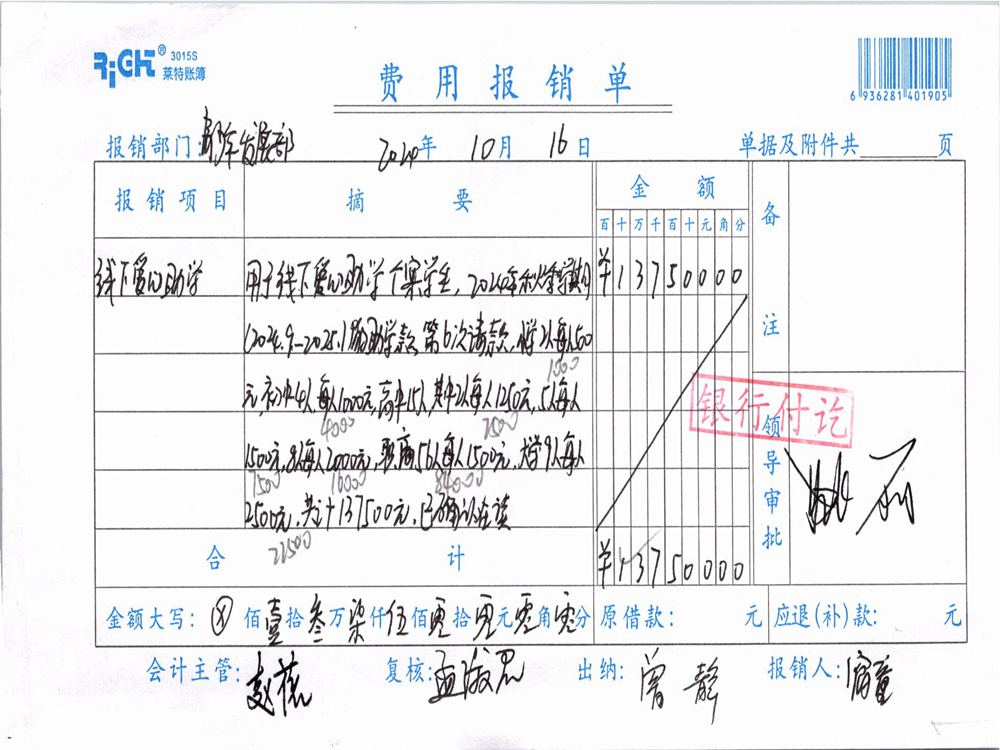 RiGHT® 3015S
莱特账簿
费用报销单
6 936281 401905
报销部门: 发展部 2024年 10月 16日 单据及附件共 页
报销项目 摘要 金额 备注
百十万千百十元角分
线下爱心助学 用于线下爱心助学个案学生,2024年秋季学期 ¥13750000
(2024.9-2025.1)助学款第6次请款,小学2人每人500
1000
元,初中4人,每人1000元,高中15人,其中2人每人1250元,5人每人
4000 2500
1500元,8人每人2000元,职高56人每人1500元,大学9人每人
7500 16000 84000
2500元,共计137500元,已确认在读
22500
银行付讫
领导审批
合计 ¥13750000
金额大写: ⊗佰壹拾叁万柒仟伍佰零拾零元零角零分 原借款: 元 应退(补)款: 元
会计主管: 赵 复核: 孟 出纳: 曾静 报销人: